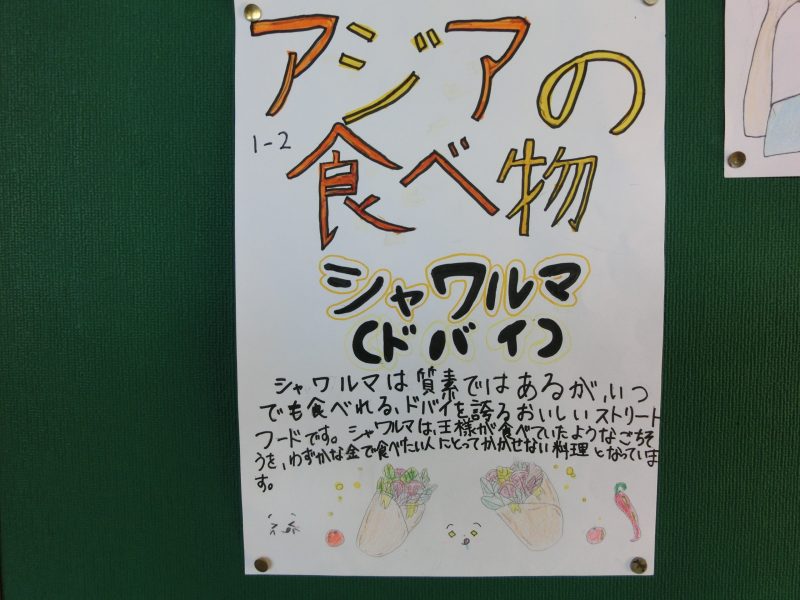 アジアの
1-2
食べ物
シャワルマ
(ドバイ)
シャワルマは質素ではあるが、いつ
でも食べれる、ドバイを誇るおいしいストリート
フードです。シャワルマは、王様が食べていたようなごちそ
うを、わずかな金で食べたい人にとってかかせない料理となっていま
す。